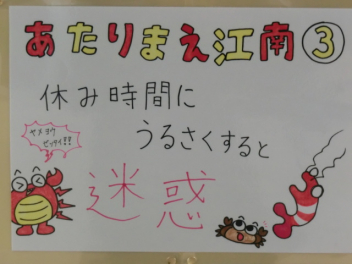 あたりまえ江南③
休み時間に
うるさくすると
ヤメヨウ
ゼッタイ!!
迷惑